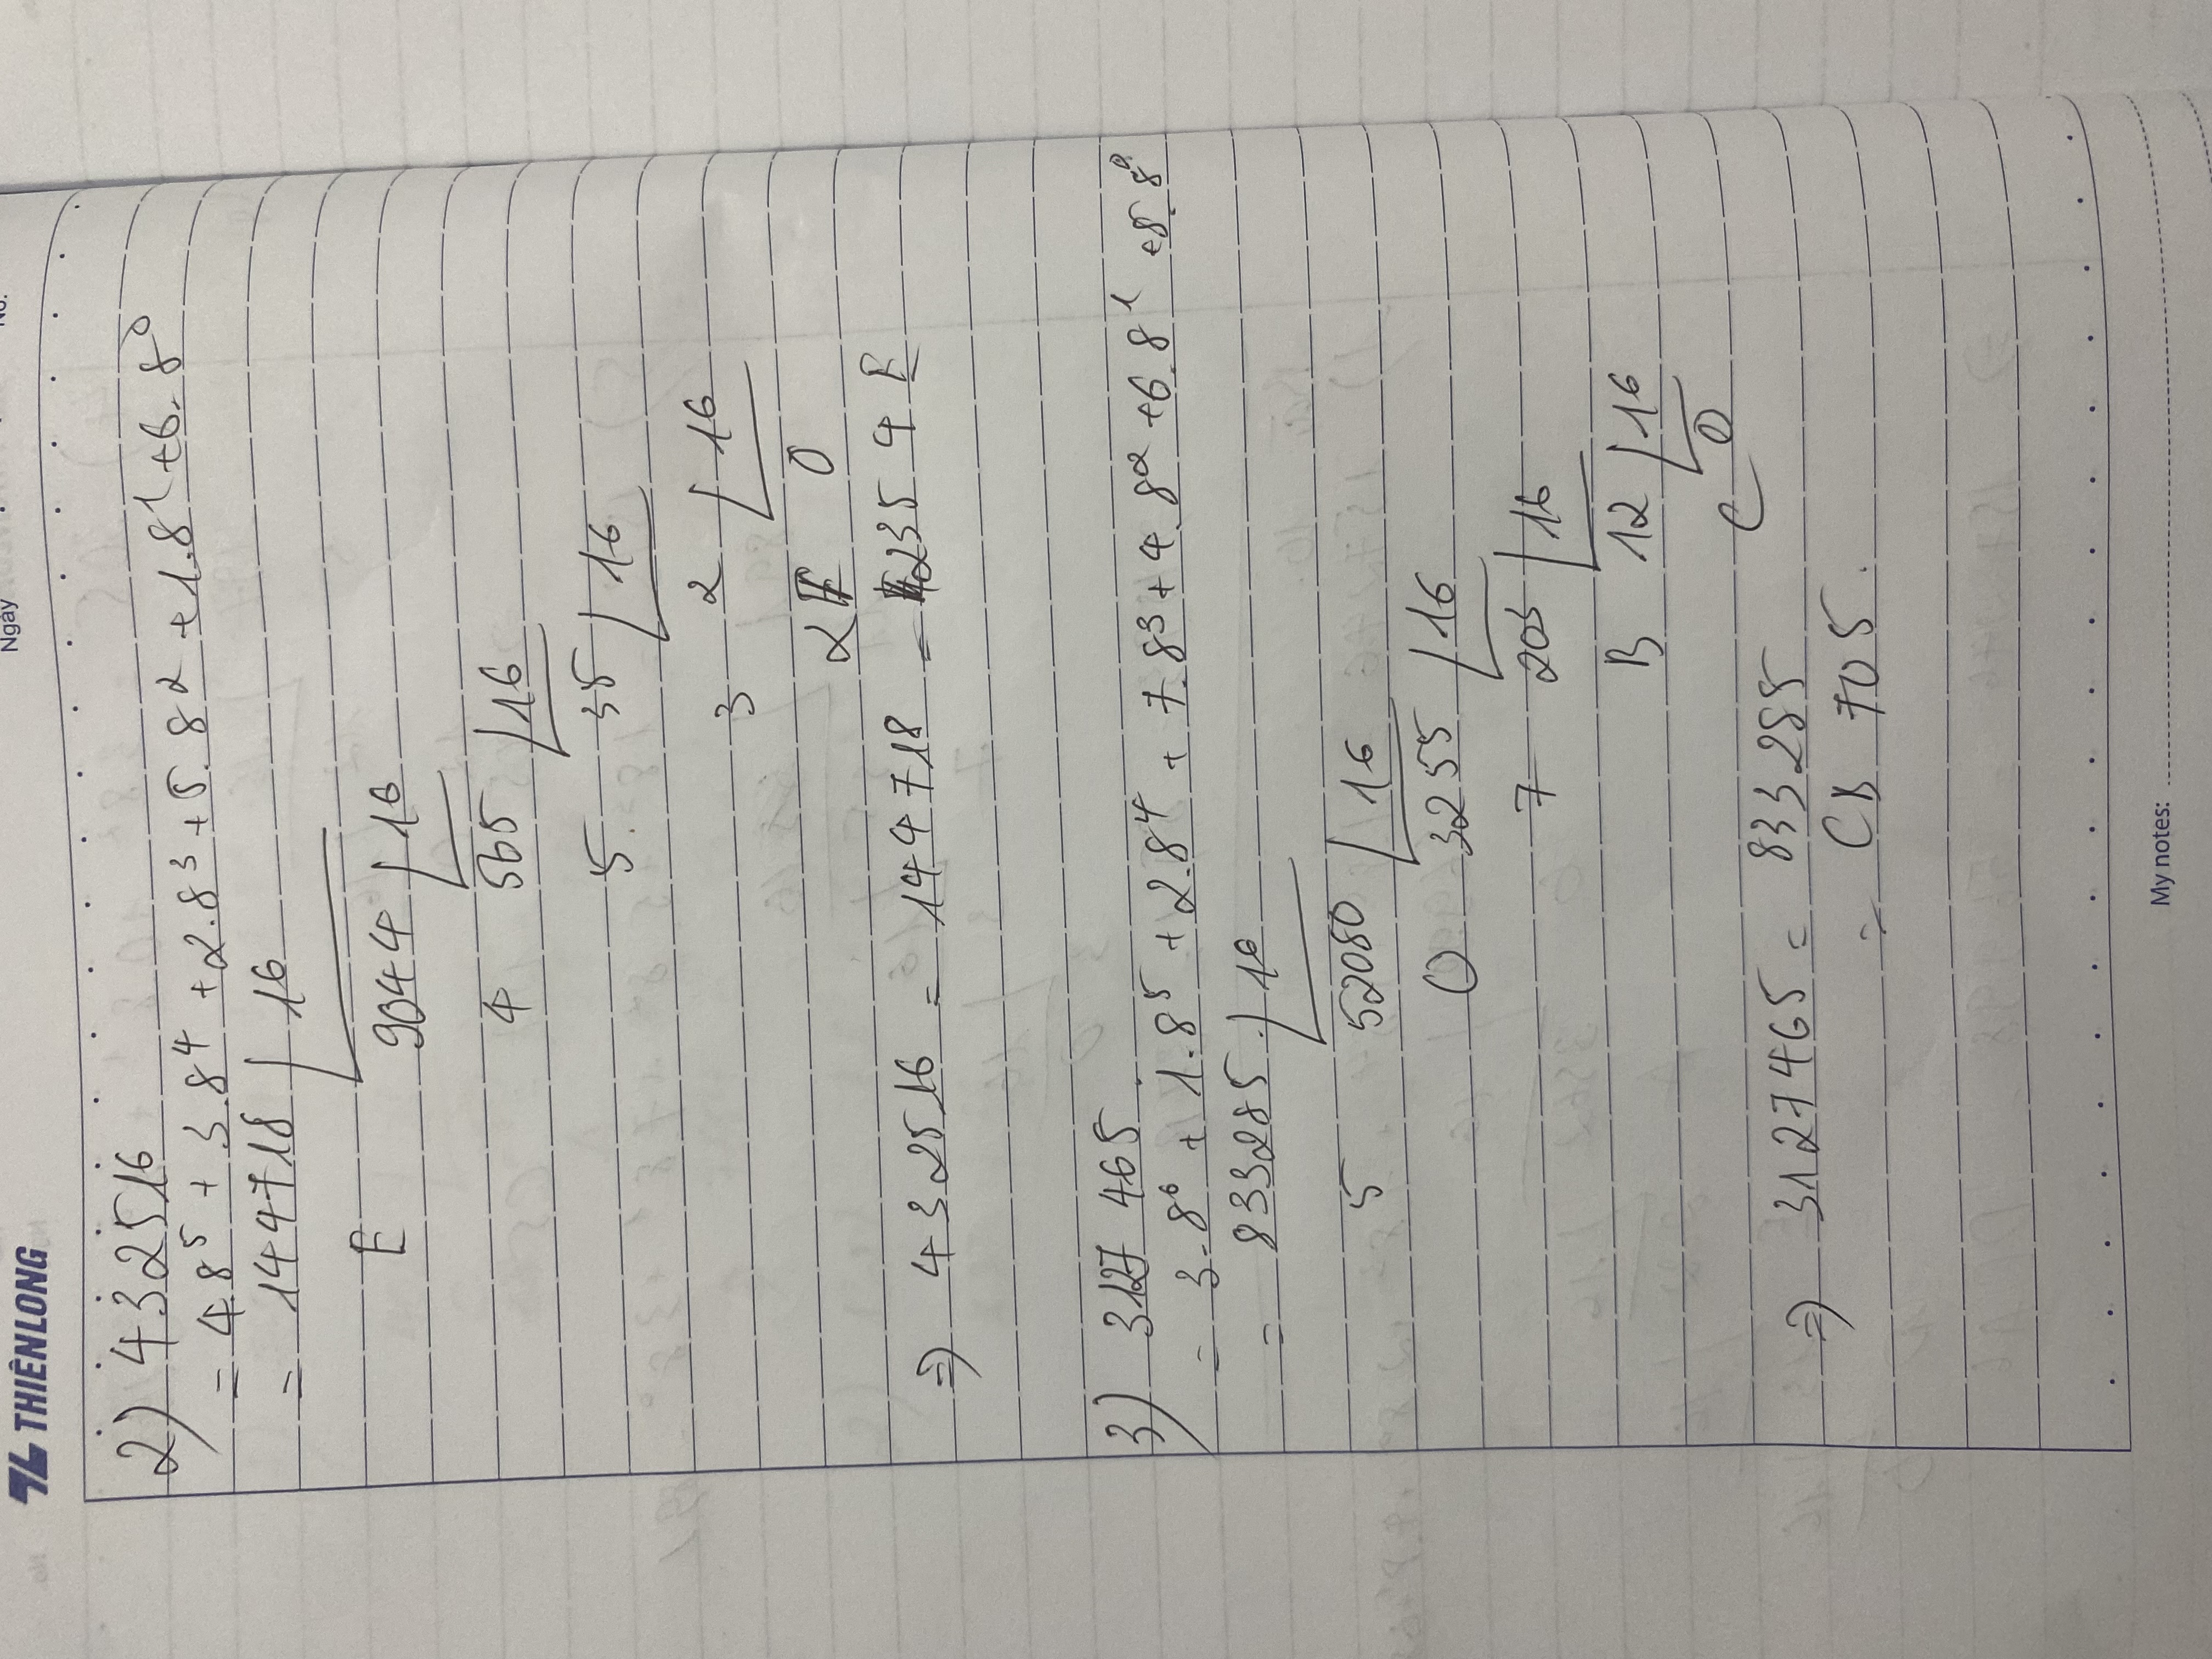 THIÊN LONG Ngày No.
2) 432516
= 4.8⁵ + 3.8⁴ + 2.8³ + 5.8² + 1.8¹ + 6.8⁰
= 144718 | 16
E 9044 | 16
4 565 | 16
5 35 | 16
3 2 | 16
2 0
=> 432516 = 144718 = 2354E
3) 3127465.
= 3.8⁶ + 1.8⁵ + 2.8⁴ + 7.8³ + 4.8² + 6.8¹ + 5.8⁰
= 833285 | 16
5 52080 | 16
0 3255 | 16
7 203 | 16
B 12 | 16
C 0
=> 3127465 = 833285
= CB 705.
My notes: